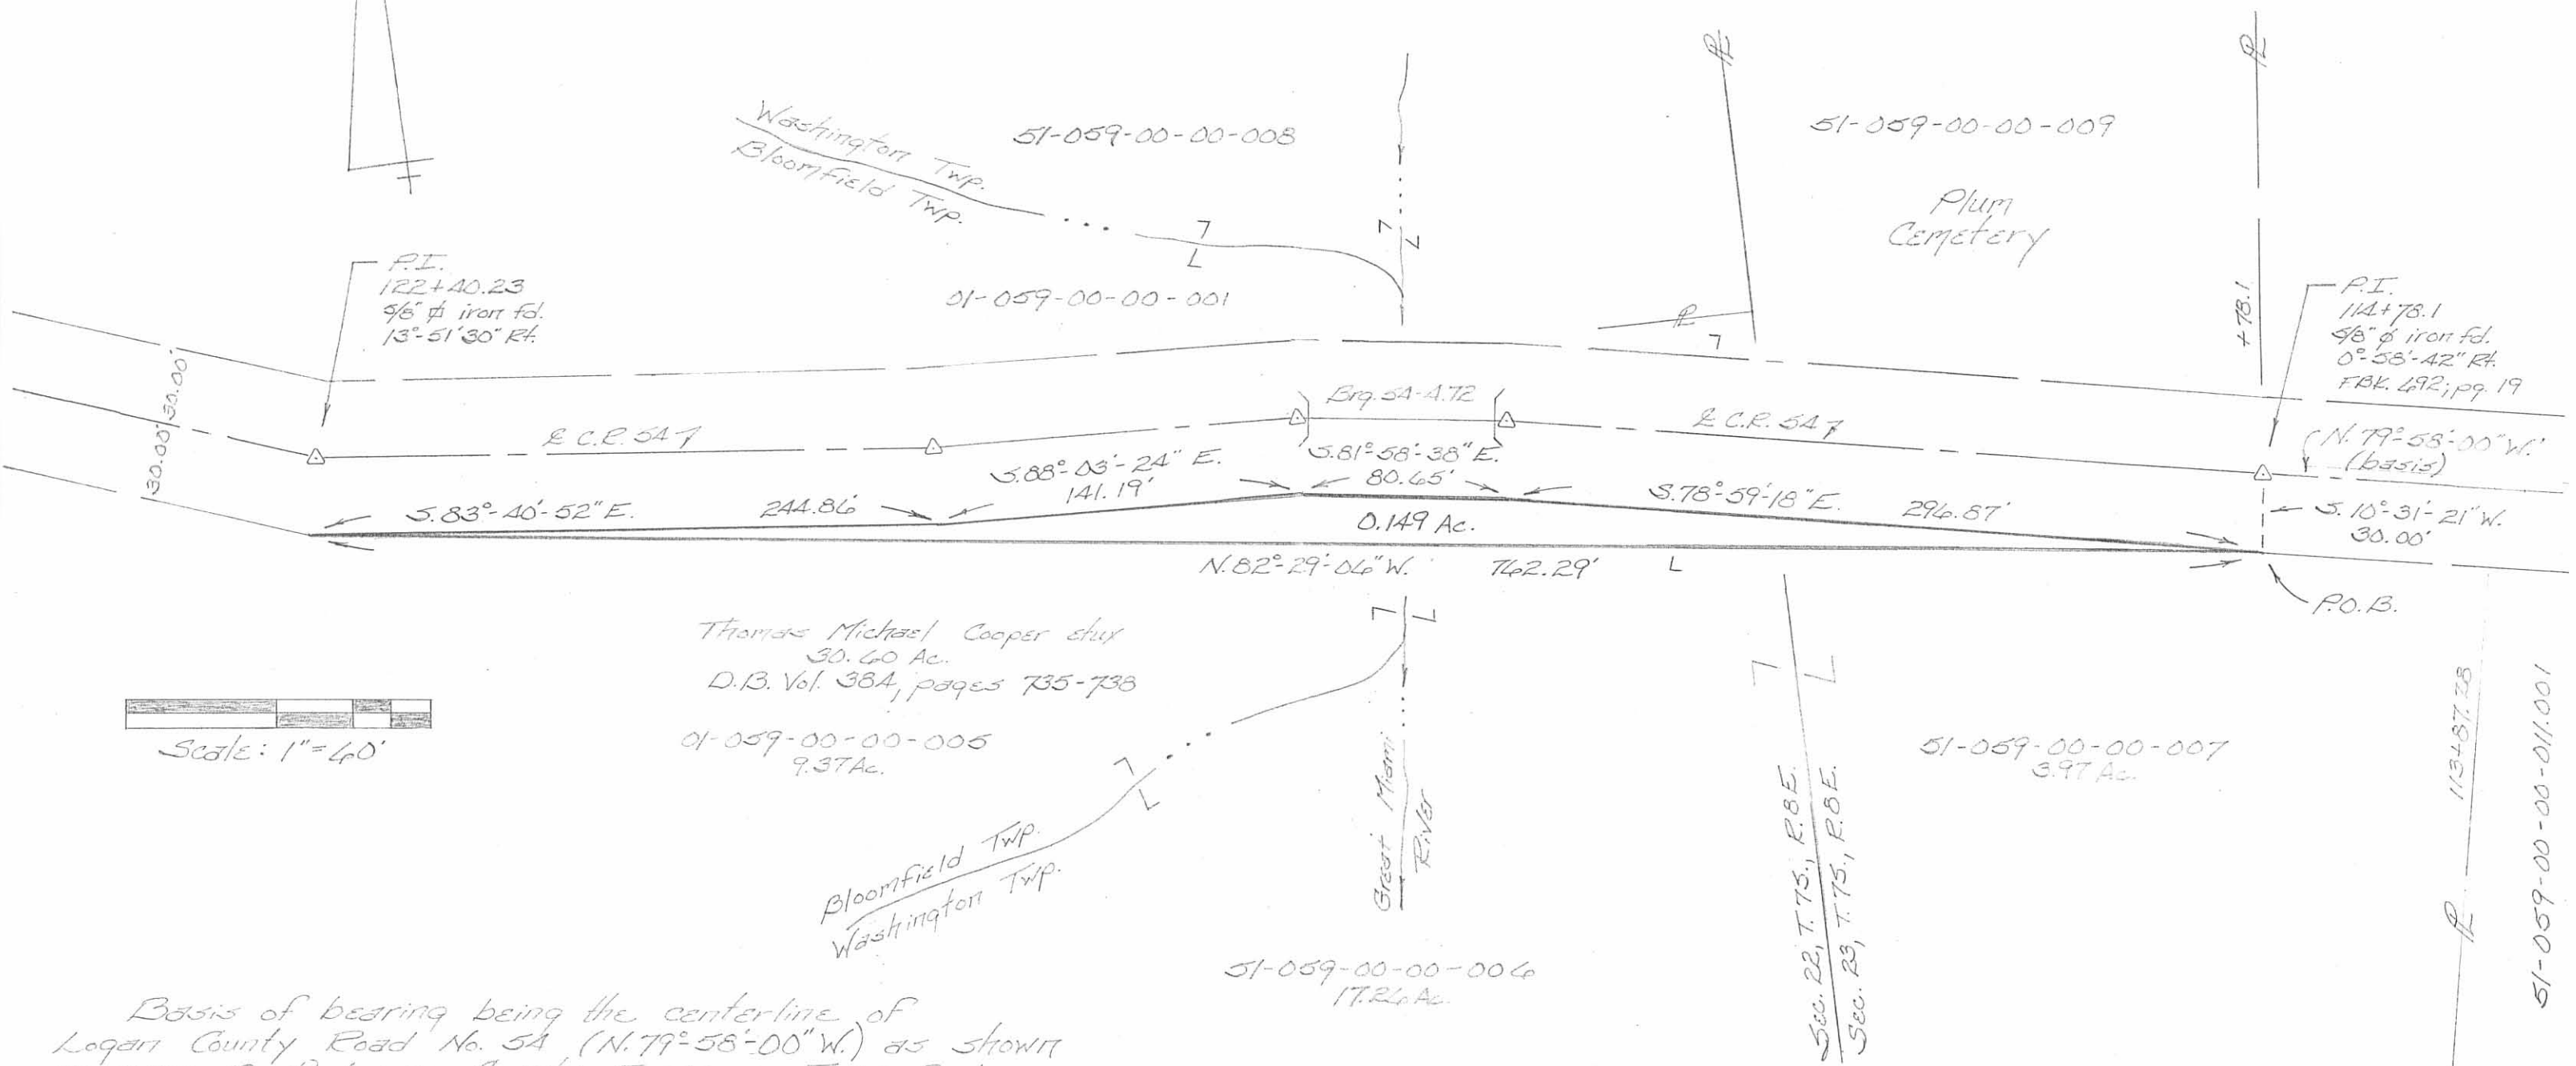 Washington Twp.
Bloomfield Twp.
51-059-00-00-008
51-059-00-00-009
Plum
Cemetery
P.I.
122+40.23
5/8" ф iron fd.
13°-51'30" Rt.
01-059-00-00-001
+78.1
P.I.
114+78.1
5/8" ф iron fd.
0°-58'-42" Rt.
FBK. 692; pg. 19
30.00' 30.00'
℄ C.R. 54
Brg. 54-4.72
℄ C.R. 54
N. 79°-58'-00" W.
(basis)
S.83°-40'-52" E. 244.86'
S.88°-03'-24" E.
141.19'
S.81°-58'-38" E.
80.65'
S.78°-59'-18" E. 296.87'
S. 10°-31'-21" W.
30.00'
0.149 Ac.
N.82°-29'-06" W. 762.29'
P.O.B.
Thomas Michael Cooper etux
30.60 Ac.
D.B. Vol. 384, pages 735-738
01-059-00-00-005
9.37 Ac.
Scale: 1"=60'
Great Miami
River
Bloomfield Twp.
Washington Twp.
51-059-00-00-006
17.26 Ac.
Sec. 22, T.7S., R.8E.
Sec. 23, T.7S., R.8E.
51-059-00-00-007
3.97 Ac.
113+87.28
51-059-00-00-011.001
Basis of bearing being the centerline of
Logan County Road No. 54 (N.79°-58'-00" W.) as shown